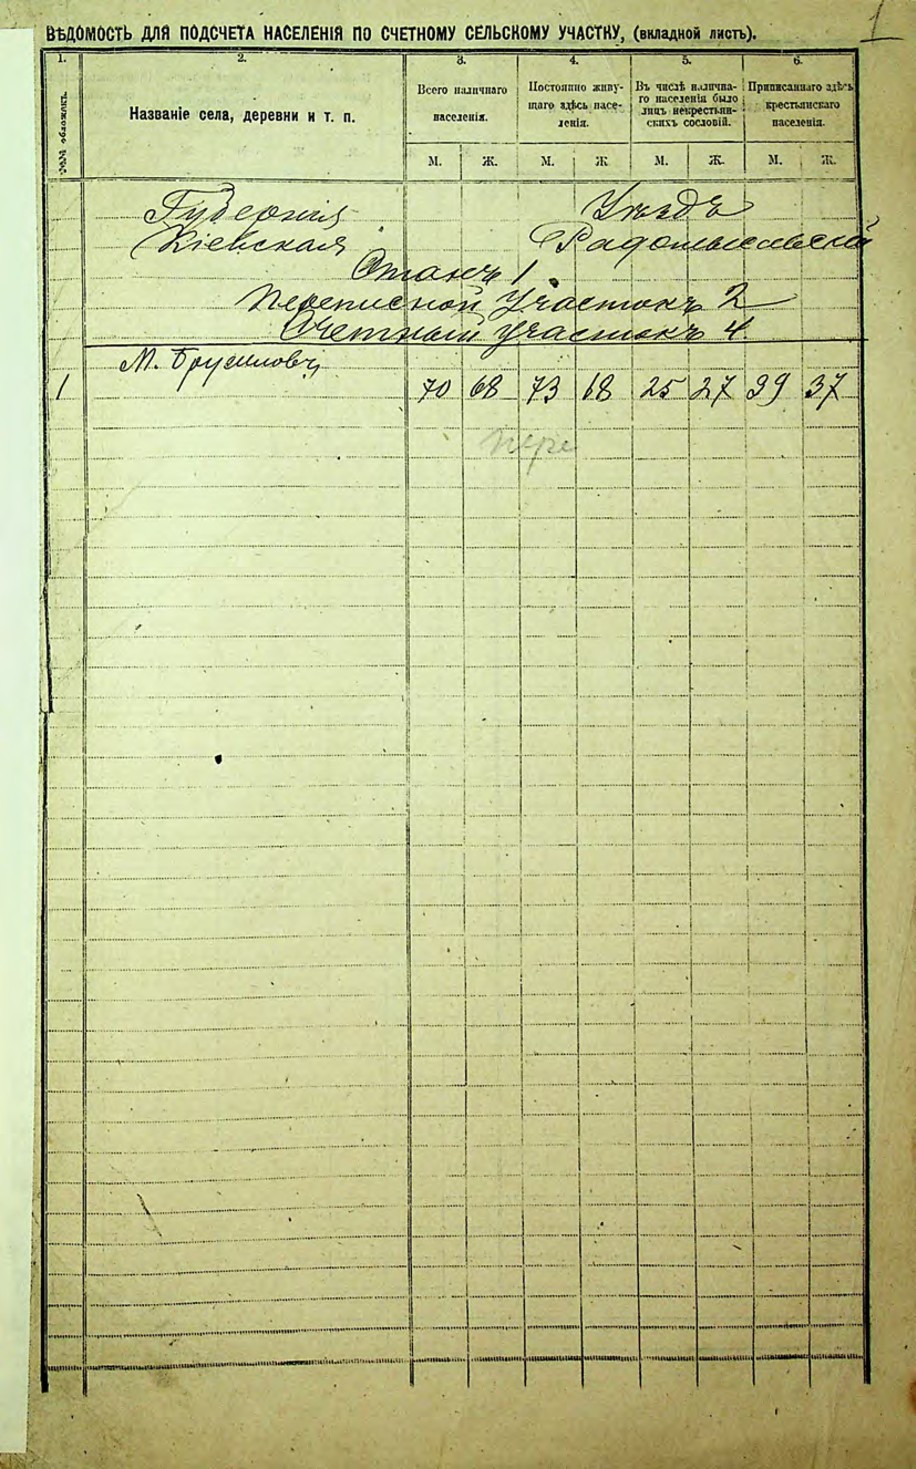 1
ВѢДОМОСТЬ ДЛЯ ПОДСЧЕТА НАСЕЛЕНІЯ ПО СЧЕТНОМУ СЕЛЬСКОМУ УЧАСТКУ, (вкладной листъ).
1. 2. 3. 4. 5. 6.
№№ обложекъ.
Названіе села, деревни и т. п.
Всего наличнаго
населенія.
Постоянно живу-
щаго здѣсь насе-
ленія.
Въ числѣ налична-
го населенія было
лицъ некрестьян-
скихъ сословій.
Приписаннаго здѣсь
крестьянскаго
населенія.
М. Ж. М. Ж. М. Ж. М. Ж.
Губернія Уѣздъ
Кіевская Радомысльскій
Станъ 1.
Переписной Участокъ 2
Счетный участокъ 4.
М. Брусиловъ
1 70 68 73 68 25 27 39 37